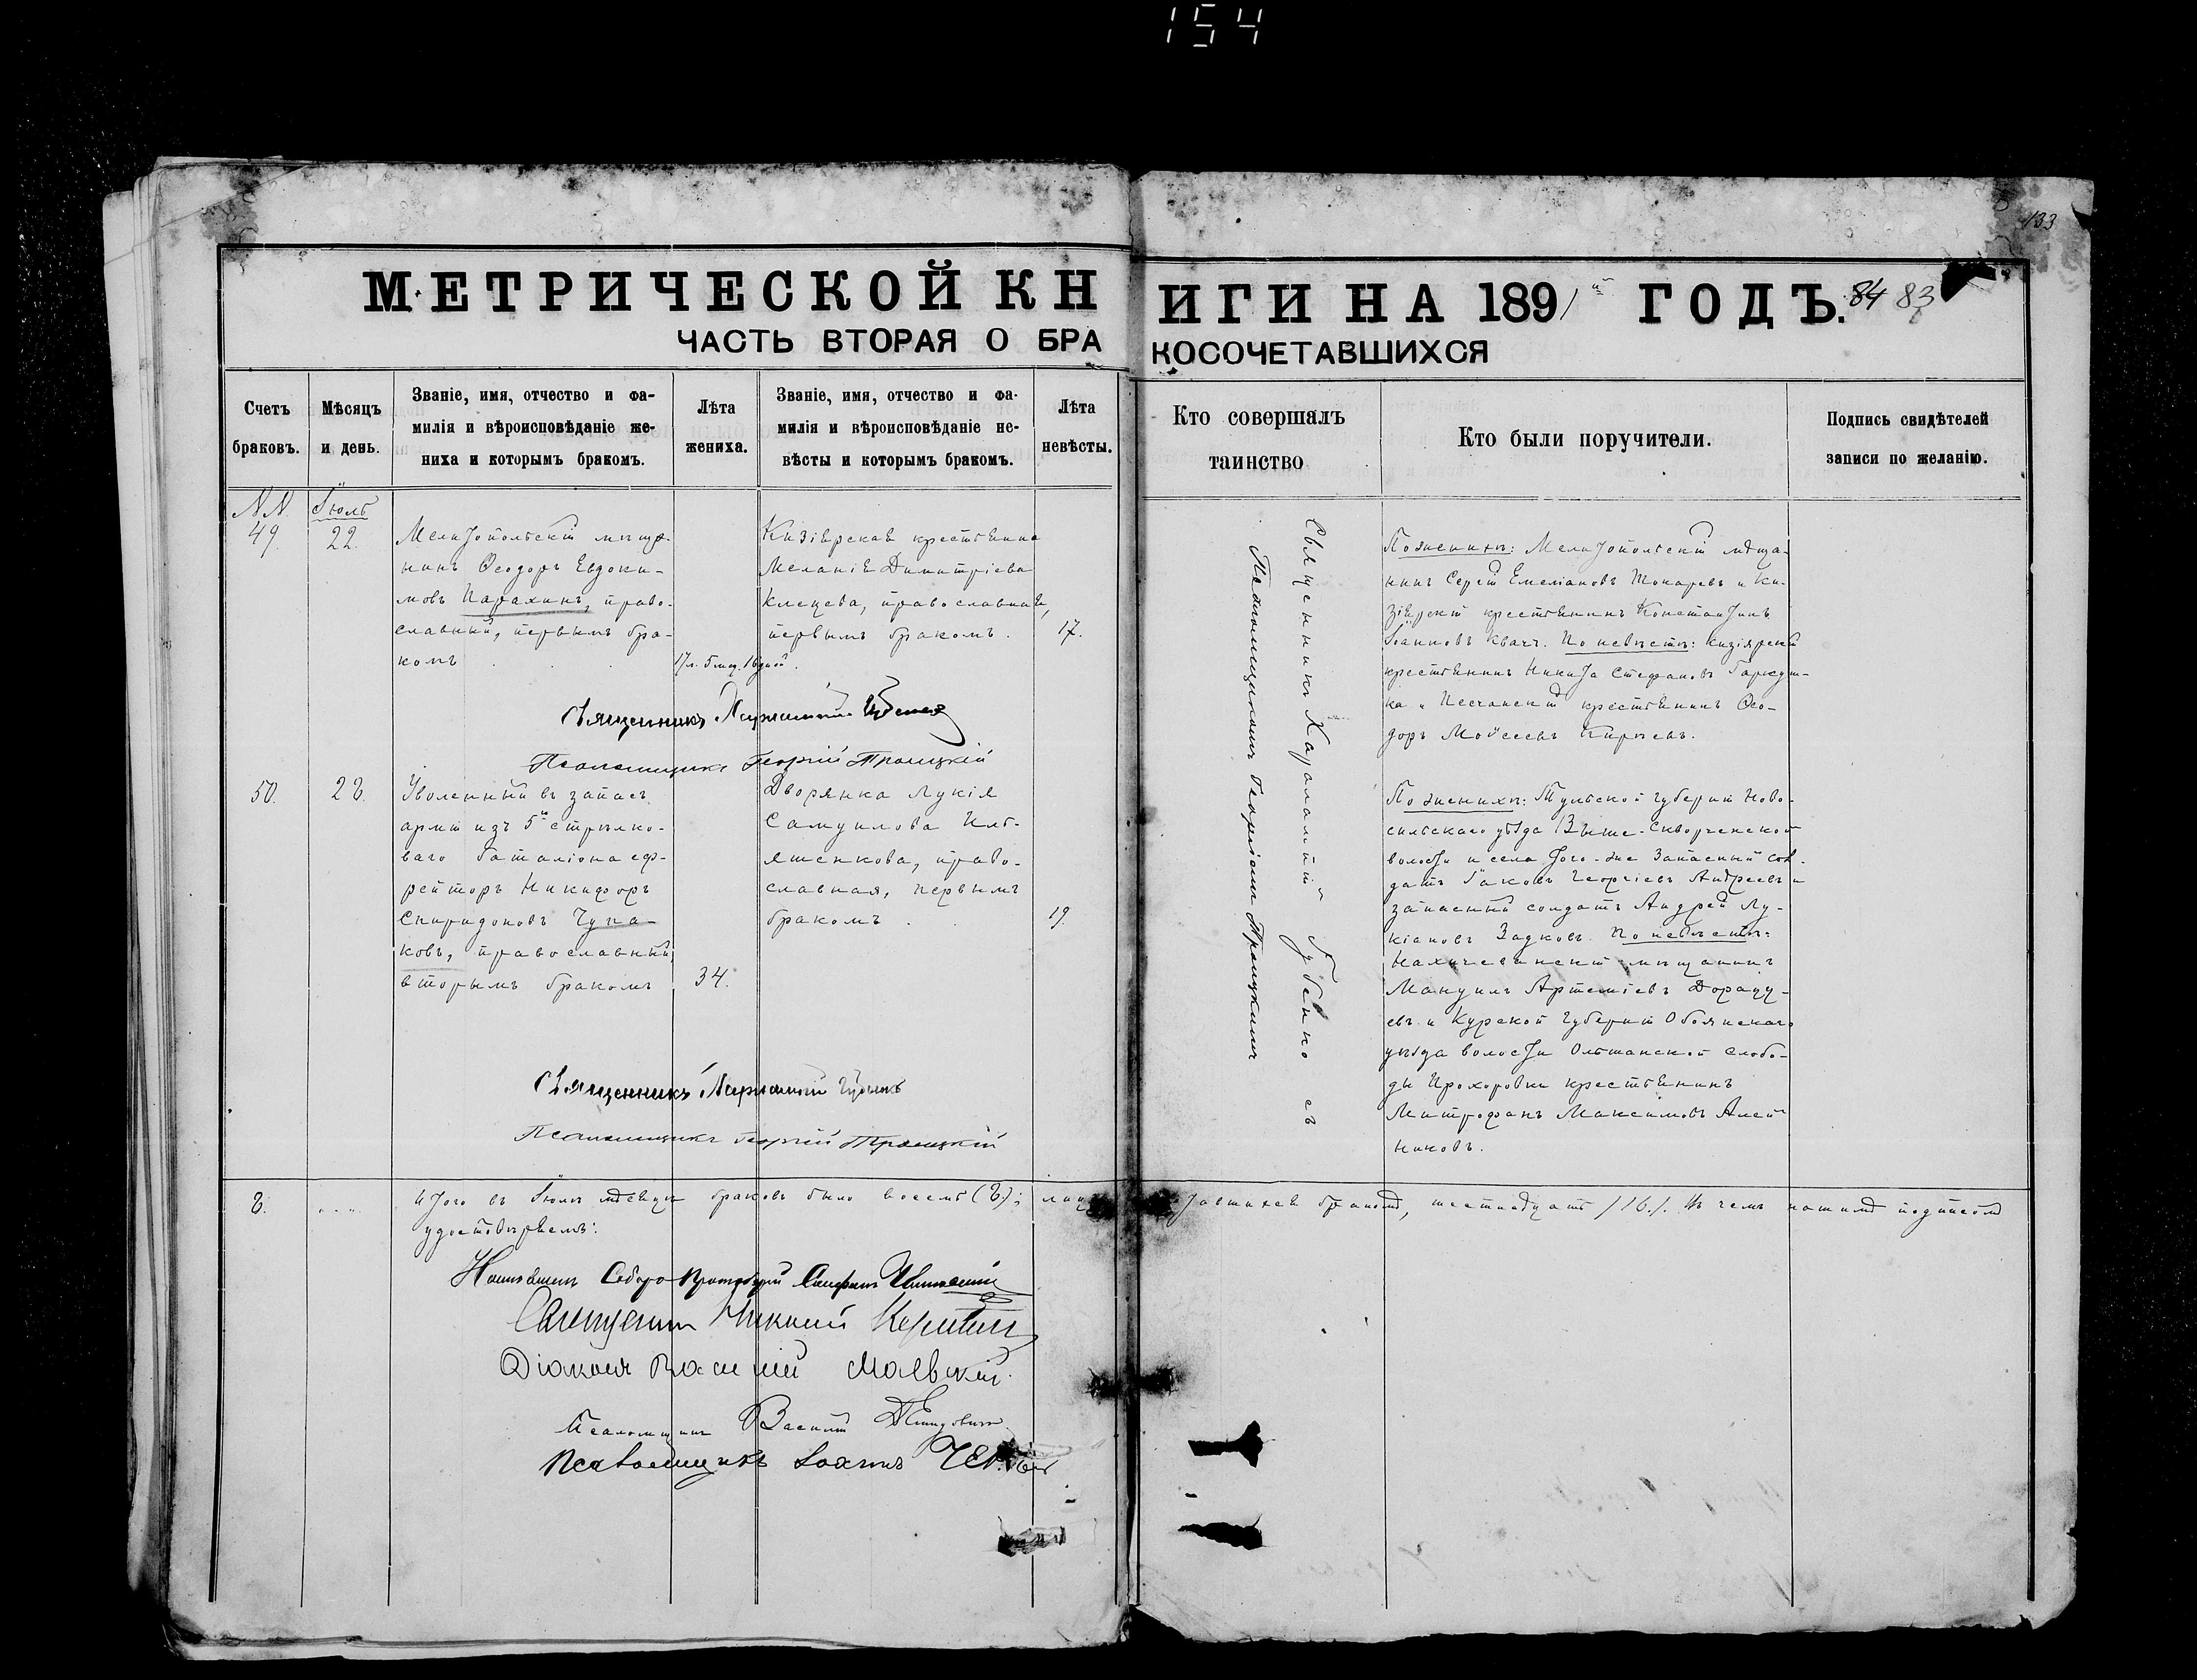 154
133
МЕТРИЧЕСКОЙ КНИГИ НА 1891 й ГОДЪ. 84 83
ЧАСТЬ ВТОРАЯ О БРАКОСОЧЕТАВШИХСЯ
Счетъ браковъ.
Мѣсяцъ и день.
Званіе, имя, отчество и фа-
милія и вѣроисповѣданіе же-
ниха и которымъ бракомъ.
Лѣта жениха.
Званіе, имя, отчество и фа-
милія и вѣроисповѣданіе не-
вѣсты и которымъ бракомъ.
Лѣта невѣсты.
Кто совершалъ
таинство
Кто были поручители.
Подпись свидѣтелей
записи по желанію.
NN
49.
Іюль
22.
Мелитопольскій мѣща-
нинъ Ѳеодоръ Евдоки-
мовъ Парахинъ, право-
славный, первымъ бра-
комъ
17л. 5 мѣс. 16 дней.
Кизіярская крестьянка
Меланія Димитріева
Клецева, православная,
первымъ бракомъ.
17.
Священникъ Харлампій
Псаломщикъ Георгій Троицкій
Священникъ Харалампій Губенко съ
Псаломщикомъ Георгіемъ Троицкимъ
По женихѣ: Мелитопольскій мѣща-
нинъ Сергѣй Емеліановъ Токаревъ и Ки-
зіярскій крестьянинъ Константинъ
Іоанновъ Квачъ. По невѣстѣ: Кизіярскій
крестьянинъ Никита Стефановъ Гаркуш-
ка и Песчанскій крестьянинъ Ѳео-
доръ Мойсеевъ Кирѣевъ.
50.
28.
Уволенный въ запасъ
арміи изъ 5го стрѣлко-
ваго баталіона еф-
рейторъ Никифоръ
Спиридоновъ Чупа-
ковъ, православный,
вторымъ бракомъ
34.
Дворянка Лукія
Самуилова Иль-
яшенкова, право-
славная, первымъ
бракомъ
19.
Священникъ Харлампій Губенко
Псаломщикъ Георгій Троицкій
По женихѣ: Тульской губерніи Ново-
сильскаго уѣзда Выше-Скворченской
волости и села того-же запасный сол-
датъ Іаковъ Георгіевъ Андреевъ и
запасный солдатъ Андрей Лу-
кіановъ Задковъ. По невѣстѣ:
Нахичеванскій мѣщанинъ
Мануилъ Артеміевъ Дорацу-
евъ и Курской губерніи Обоянскаго
уѣзда волости Ольшанской слобо-
ды Прохоровки крестьянинъ
Митрофанъ Максимовъ Алей-
никовъ.
8.
Итого въ Іюлѣ мѣсяцѣ браковъ было восемь (8); лицъ сочетавшихся бракомъ, шестнадцать /16/. Въ чемъ нашимъ подписомъ
удостовѣряемъ:
Настоятель Собора Протоіерей
Священникъ Николай
Діаконъ Василій Маевскій.
Псаломщикъ Василій
Псаломщикъ Іоаннъ